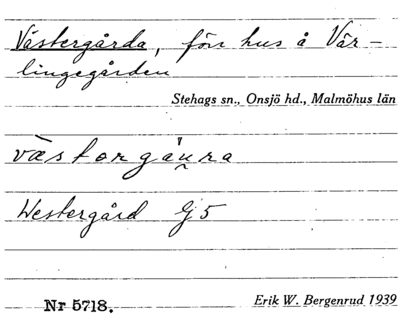 Västergårda, förr hus å Vär-
lingegården
Stehags sn., Onsjö hd., Malmöhus län
Westergård G 5
Nr 5718. Erik W. Bergenrud 1939